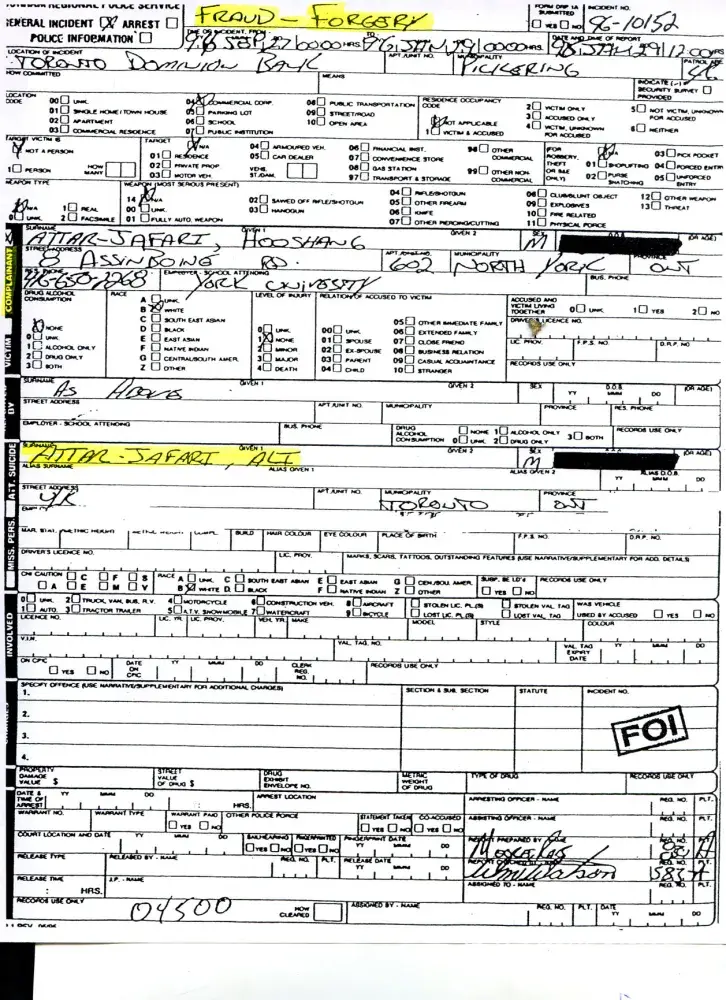 GENERAL INCIDENT ☒ ARREST ☐ FRAUD - FORGERY FORM DRP 1A SUBMITTED INCIDENT NO.
POLICE INFORMATION ☐ ☐ YES ☐ NO 96-10152
TIME OF INCIDENT, FROM TO DATE AND TIME OF REPORT
LOCATION OF INCIDENT APT./UNIT NO. MUNICIPALITY PATROL AREA
TORONTO DOMINION BANK PICKERING
HOW COMMITTED MEANS INDICATE (✓) IF SECURITY SURVEY ☐ PROVIDED
LOCATION CODE RESIDENCE OCCUPANCY CODE
00 ☐ UNK. 04 COMMERCIAL CORP. 08 ☐ PUBLIC TRANSPORTATION 2 ☐ VICTIM ONLY 5 ☐ NOT VICTIM, UNKNOWN FOR ACCUSED
01 ☐ SINGLE HOME/TOWN HOUSE 05 ☐ PARKING LOT 09 ☐ STREET/ROAD NOT APPLICABLE 3 ☐ ACCUSED ONLY
02 ☐ APARTMENT 06 ☐ SCHOOL 10 ☐ OPEN AREA 1 ☐ VICTIM & ACCUSED 4 ☐ VICTIM, UNKNOWN FOR ACCUSED 6 ☐ NEITHER
03 ☐ COMMERCIAL RESIDENCE 07 ☐ PUBLIC INSTITUTION
TARGET VICTIM IS TARGET
NOT A PERSON N/A 04 ☐ ARMOURED VEH. 06 ☐ FINANCIAL INST. 98 ☐ OTHER COMMERCIAL (FOR ROBBERY, THEFT OR B&E ONLY) N/A 03 ☐ PICK POCKET
01 ☐ RESIDENCE 05 ☐ CAR DEALER 07 ☐ CONVENIENCE STORE 01 ☐ SHOPLIFTING 04 ☐ FORCED ENTRY
1 ☐ PERSON HOW MANY 02 ☐ PRIVATE PROP 08 ☐ GAS STATION 99 ☐ OTHER NON-COMMERCIAL 02 ☐ PURSE SNATCHING 05 ☐ UNFORCED ENTRY
03 ☐ MOTOR VEH. 97 ☐ TRANSPORT & STORAGE
WEAPON TYPE WEAPON (MOST SERIOUS PRESENT)
N/A 14 N/A 02 ☐ SAWED OFF RIFLE/SHOTGUN 04 ☐ RIFLE/SHOTGUN 08 ☐ CLUB/BLUNT OBJECT 12 ☐ OTHER WEAPON
1 ☐ REAL 00 ☐ UNK. 03 ☐ HANDGUN 05 ☐ OTHER FIREARM 09 ☐ EXPLOSIVES 13 ☐ THREAT
0 ☐ UNK. 2 ☐ FACSIMILE 01 ☐ FULLY AUTO. WEAPON 06 ☐ KNIFE 10 ☐ FIRE RELATED
07 ☐ OTHER PIERCING/CUTTING 11 ☐ PHYSICAL FORCE
COMPLAINANT
SURNAME GIVEN 1 GIVEN 2 SEX (OR AGE)
ATTAR-JAFARI, HOOSHANG M
STREET ADDRESS APT./UNIT NO. MUNICIPALITY
8 ASSINBOINE RD. 602 NORTH YORK ONT
EMPLOYER - SCHOOL ATTENDING BUS. PHONE
416-650-1268 YORK UNIVERSITY
DRUG ALCOHOL CONSUMPTION RACE LEVEL OF INJURY RELATION OF ACCUSED TO VICTIM ACCUSED AND VICTIM LIVING TOGETHER 0 ☐ UNK. 1 ☐ YES 2 ☐ NO
A ☐ UNK.
B ☒ WHITE
NONE C ☐ SOUTH EAST ASIAN 0 ☐ UNK. 00 ☐ UNK. 05 ☐ OTHER IMMEDIATE FAMILY DRIVER'S LICENCE NO.
0 ☐ UNK. D ☐ BLACK NONE 01 ☐ SPOUSE 06 ☐ EXTENDED FAMILY
1 ☐ ALCOHOL ONLY E ☐ EAST ASIAN 2 ☐ MINOR 02 ☐ EX-SPOUSE 07 ☐ CLOSE FRIEND LIC. PROV. F.P.S. NO. D.R.P. NO
2 ☐ DRUG ONLY F ☐ NATIVE INDIAN 3 ☐ MAJOR 03 ☐ PARENT 08 ☐ BUSINESS RELATION
3 ☐ BOTH G ☐ CENTRAL/SOUTH AMER. 4 ☐ DEATH 04 ☐ CHILD 09 ☐ CASUAL ACQUAINTANCE RECORDS USE ONLY
Z ☐ OTHER 10 ☐ STRANGER
VICTIM
SURNAME GIVEN 1 GIVEN 2 SEX D.O.B. (OR AGE)
AS ABOVE YY MMM DD
STREET ADDRESS APT./UNIT NO. MUNICIPALITY PROVINCE RES. PHONE
BY
EMPLOYER - SCHOOL ATTENDING BUS. PHONE DRUG ALCOHOL CONSUMPTION ☐ NONE 1 ☐ ALCOHOL ONLY 0 ☐ UNK. 2 ☐ DRUG ONLY 3 ☐ BOTH RECORDS USE ONLY
MISS. PERS. ATT. SUICIDE
SURNAME GIVEN 1 GIVEN 2 SEX (OR AGE)
ATTAR-JAFARI, ALI M
ALIAS SURNAME ALIAS GIVEN 1 ALIAS GIVEN 2 ALIAS D.O.B.
YY MMM DD
STREET ADDRESS APT./UNIT NO. MUNICIPALITY PROVINCE
U/K TORONTO ONT
MAR. STAT. BUILD HAIR COLOUR EYE COLOUR PLACE OF BIRTH F.P.S. NO. D.R.P. NO.
DRIVER'S LICENCE NO. LIC. PROV. MARKS, SCARS, TATTOOS, OUTSTANDING FEATURES (USE NARRATIVE/SUPPLEMENTARY FOR ADD. DETAILS)
CNI CAUTION ☐ C ☐ F ☐ S RACE A ☐ UNK. C ☐ SOUTH EAST ASIAN E ☐ EAST ASIAN G ☐ CEN./SOU. AMER. SUSP. BE I.D'd RECORDS USE ONLY
☐ A ☐ E ☐ M ☐ V B ☒ WHITE D. ☐ BLACK F ☐ NATIVE INDIAN Z ☐ OTHER ☐ YES ☐ NO
INVOLVED
0 ☐ UNK. 2 ☐ TRUCK, VAN, BUS, R.V. 4 ☐ MOTORCYCLE 6 ☐ CONSTRUCTION VEH. 8 ☐ AIRCRAFT ☐ STOLEN LIC. PL.(S) ☐ STOLEN VAL. TAG WAS VEHICLE
1 ☐ AUTO. 3 ☐ TRACTOR TRAILER 5 ☐ A.T.V. SNOWMOBILE 7 ☐ WATERCRAFT 9 ☐ BICYCLE ☐ LOST LIC. PL.(S) ☐ LOST VAL. TAG USED BY ACCUSED ☐ YES ☐ NO
LICENCE NO. LIC. YR. LIC. PROV. VEH. YR. MAKE MODEL STYLE COLOUR
V.I.N. VAL. TAG. NO. VAL. TAG EXPIRY DATE YY MMM DD
ON CPIC ☐ YES ☐ NO DATE ON CPIC YY MMM DD CLERK REG. NO. RECORDS USE ONLY
SPECIFY OFFENCE (USE NARRATIVE/SUPPLEMENTARY FOR ADDITIONAL CHARGES) SECTION & SUB. SECTION STATUTE INCIDENT NO.
1.
2.
FOI
3.
4.
PROPERTY DAMAGE VALUE $ STREET VALUE OF DRUG $ DRUG EXHIBIT ENVELOPE NO. METRIC WEIGHT OF DRUG TYPE OF DRUG RECORDS USE ONLY
DATE & TIME OF ARREST YY MMM DD : HRS. ARREST LOCATION ARRESTING OFFICER - NAME REG. NO. PLT.
WARRANT NO. WARRANT TYPE WARRANT PAID ☐ YES ☐ NO OTHER POLICE FORCE STATEMENT TAKEN ☐ YES ☐ NO CO-ACCUSED ☐ YES ☐ NO ASSISTING OFFICER - NAME REG. NO. PLT.
COURT LOCATION AND DATE YY MMM DD BAIL HEARING ☐ YES ☐ NO FINGERPRINTED ☐ YES ☐ NO FINGERPRINT DATE YY MMM DD REPORT PREPARED BY
RELEASE TYPE RELEASED BY - NAME REG. NO. PLT. RELEASE DATE YY MMM DD
583 A
RELEASE TIME : HRS. J.P. - NAME ASSIGNED TO - NAME REG. NO. PLT.
RECORDS USE ONLY 04500 HOW CLEARED ASSIGNED BY - NAME REG. NO. PLT. DATE YY MMM DD